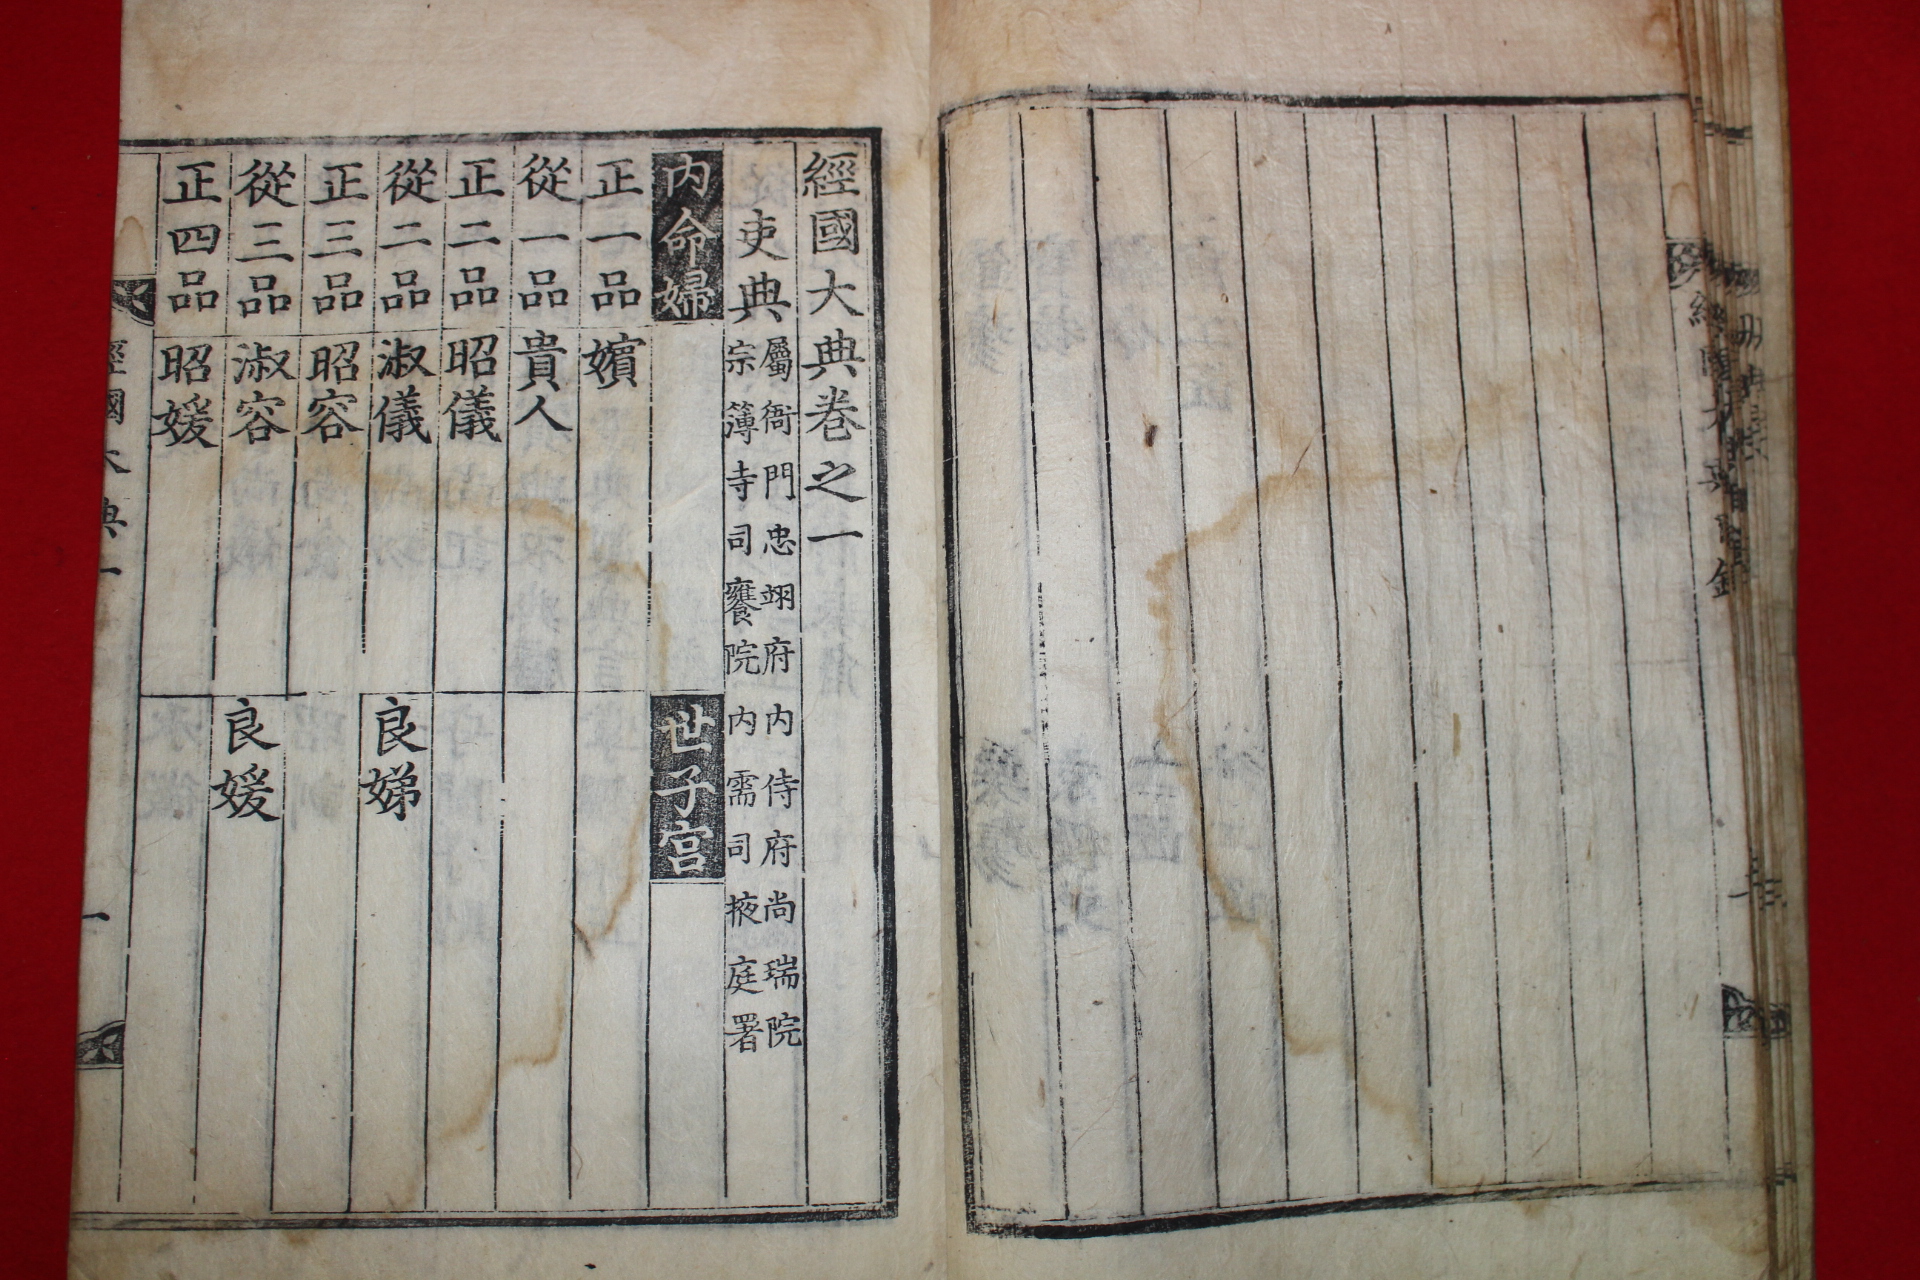 經國大典目錄
經國大典卷之一
吏典 屬衙門忠翊府內侍府尚瑞院
宗簿寺司饔院內需司掖庭署
內命婦 世子宮
正一品 嬪
從一品 貴人
正二品 昭儀
從二品 淑儀 良娣
正三品 昭容
從三品 淑容 良媛
正四品 昭媛
經國大典一
一